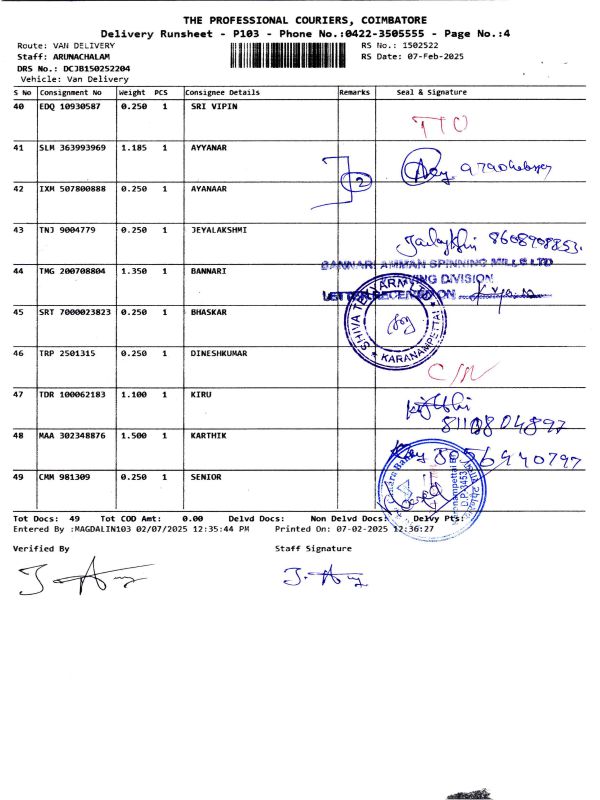 THE PROFESSIONAL COURIERS, COIMBATORE
Delivery Runsheet - P103 - Phone No.:0422-3505555 - Page No.:4
Route: VAN DELIVERY RS No.: 1502522
Staff: ARUNACHALAM RS Date: 07-Feb-2025
DRS No.: DCJB150252204
Vehicle: Van Delivery
S No Consignment No Weight PCS Consignee Details Remarks Seal & Signature
40 EDQ 10930587 0.250 1 SRI VIPIN
41 SLM 363993969 1.185 1 AYYANAR
42 IXM 507800888 0.250 1 AYANAAR 2
43 TNJ 9004779 0.250 1 JEYALAKSHMI 8608908853.
BANNARI AMMAN SPINNING MILLS LTD
44 TMG 200708804 1.350 1 BANNARI
DIVISION
LETTER RECEIVED ON
45 SRT 7000023823 0.250 1 BHASKAR
KARANAMPETTAI
46 TRP 2501315 0.250 1 DINESHKUMAR
47 TDR 100062183 1.100 1 KIRU
8110804897
48 MAA 302348876 1.500 1 KARTHIK 8056940797
49 CMM 981309 0.250 1 SENIOR
Tot Docs: 49 Tot COD Amt: 0.00 Delvd Docs: Non Delvd Docs: Delvy Pts:
Entered By :MAGDALIN103 02/07/2025 12:35:44 PM Printed On: 07-02-2025 12:36:27
Verified By Staff Signature